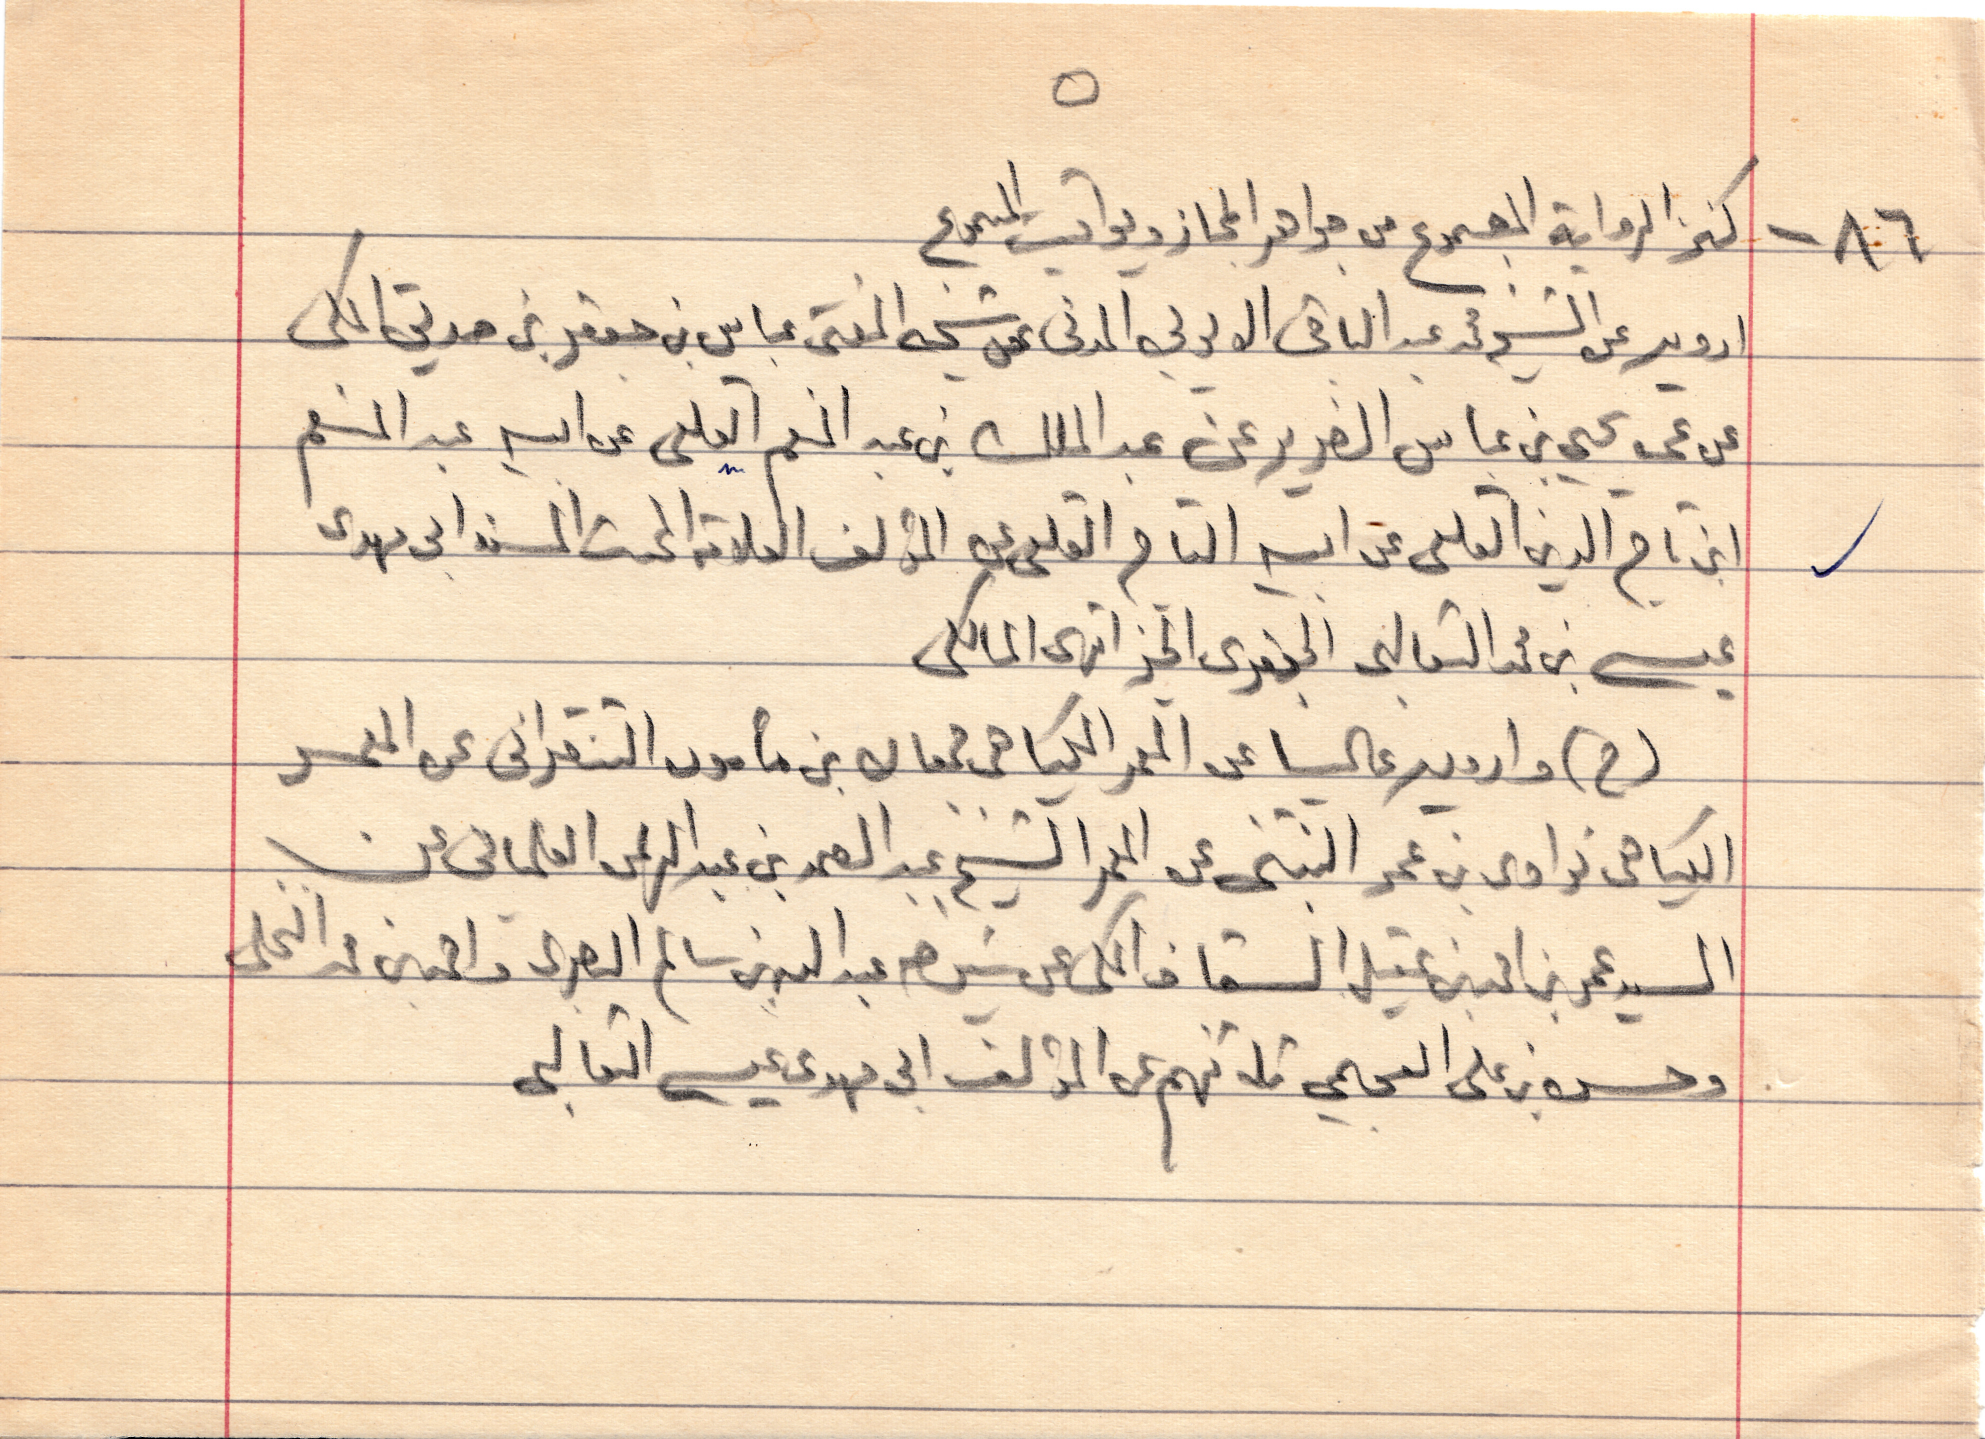 ٥
٨٦ - كنز الرواية المجموع من جواهر المجاز ويواقيت المسموع
ارويه عن الشيخ محمد عبد الباقى الايوبي المدنى عن شيخه المفتى عباس بن جعفر بن صديق المكى
عن عمه يحيى بن عباس الضرير عن عبد الملك بن عبد المنعم القلعى عن ابيه عبد المنعم
ابن تاج الدين القلعى عن ابيه التاج القلعى عن المؤلف العلامة المحدث المسند ابى مهدى
عيسى بن محمد الثعالبى الجعفرى الجزائرى المالكى
(ح) وارويه عاليا عن المعمر الكياهى جمعان بن مأمون التنقرانى عن المعمر
الكياهى نواوى بن عمر البنتنى عن المعمر الشيخ عبد الصمد بن عبد الرحمن الفلمبانى عن
السيد عمر بن احمد بن عقيل السقاف المكى عن شيوخه عبد الله بن سالم البصرى واحمد بن محمد النخلى
وحسن بن على العجيمي ثلاثتهم عن المؤلف ابى مهدى عيسى الثعالبى